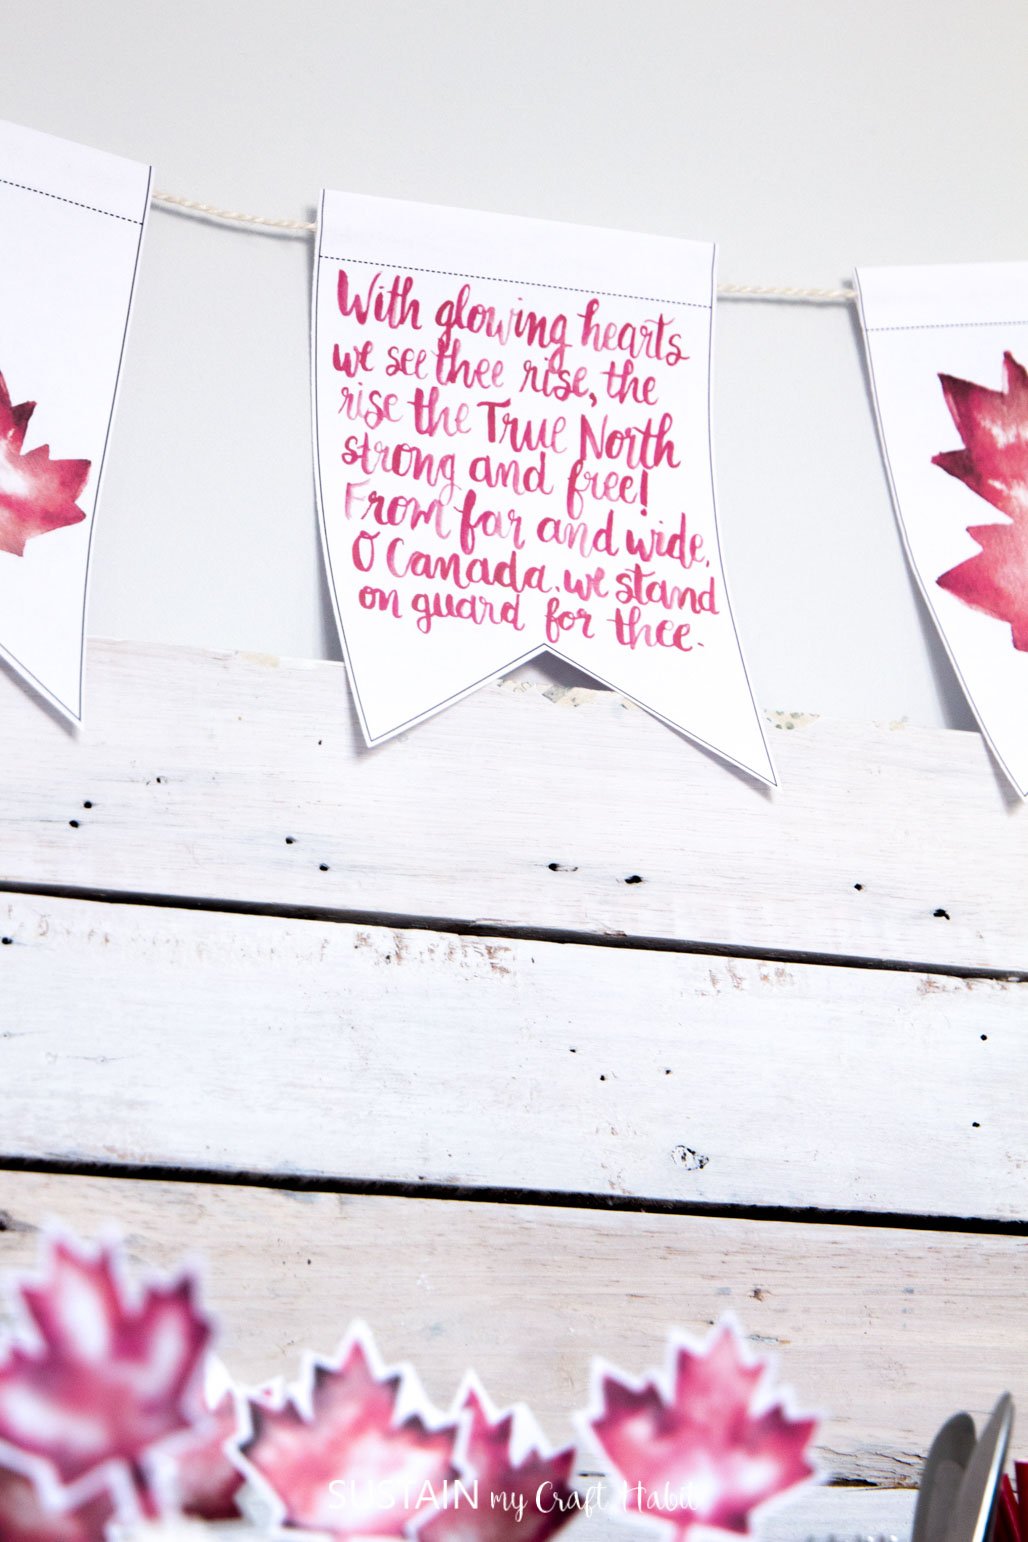 With glowing hearts
we see thee rise, the
rise the True North
strong and free!
From far and wide,
O Canada, we stand
on guard for thee.
SUSTAIN my Craft Habit